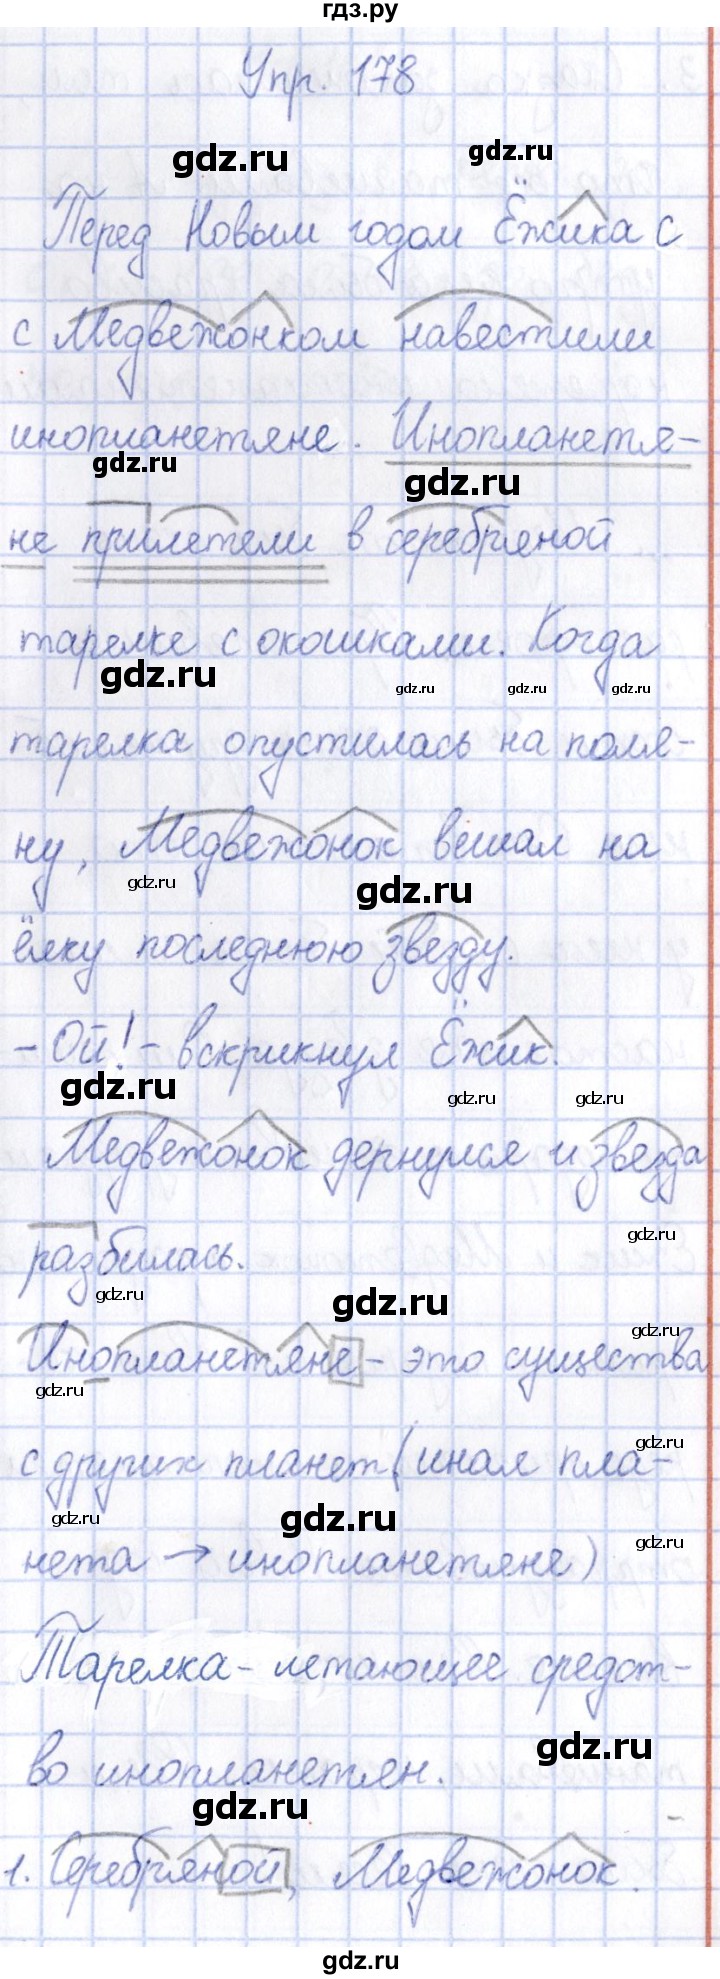 гдз.ру
Упр. 178
gdz.ru
gdz.ru
Перед Новым годом Ёжика с
с Медвежонком навестили
инопланетяне. Инопланетя-
gdz.ru
gdz.ru
не прилетели в серебряной
тарелке с окошками. Когда
gdz.ru
gdz.ru
gdz.ru
gdz.ru
тарелка опустилась на поля-
ну, Медвежонок вешал на
gdz.ru
gdz.ru
ёлку последнюю звезду.
- Ой! - вскрикнул Ёжик.
gdz.ru
gdz.ru
gdz.ru
Медвежонок дернулся и звезда
gdz.ru
разбилась.
gdz.ru
gdz.ru
gdz.ru
Инопланетяне - это существа
gdz.ru
gdz.ru
с других планет (иная пла-
gdz.ru
gdz.ru
gdz.ru
нета → инопланетяне)
Тарелка - летающее средст-
gdz.ru
во инопланетян.
gdz.ru
1. Серебряной, Медвежонок.
gdz.ru